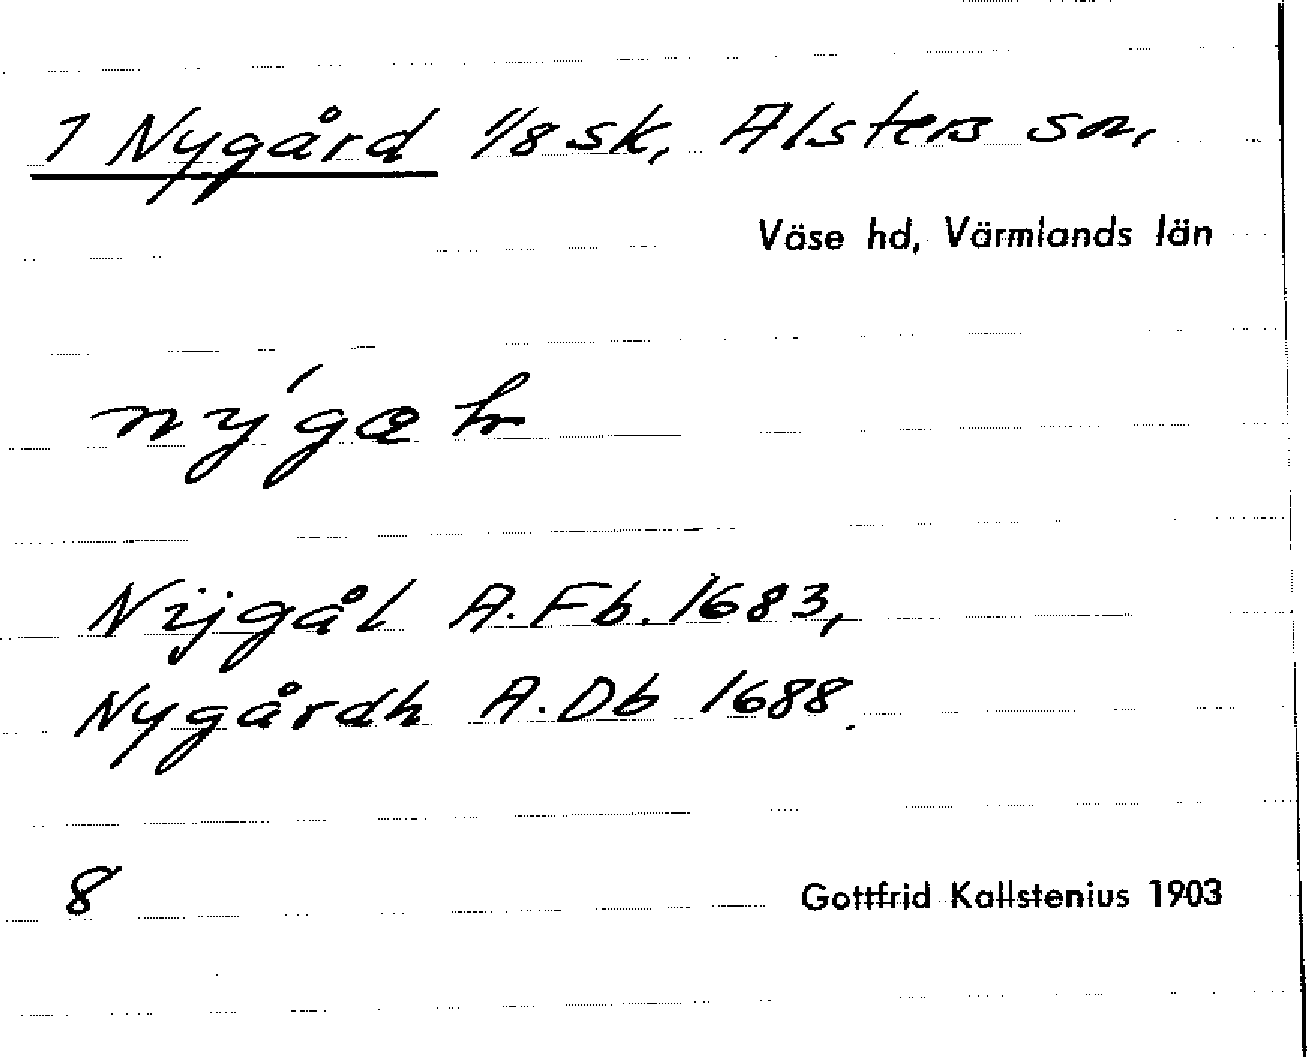 1 Nygård 1/8 sk, Alsters sn,
Väse hd, Värmlands län
Nijgål A.Fb. 1683,
Nygårdh A.Db 1688.
8
Gottfrid Kallstenius 1903